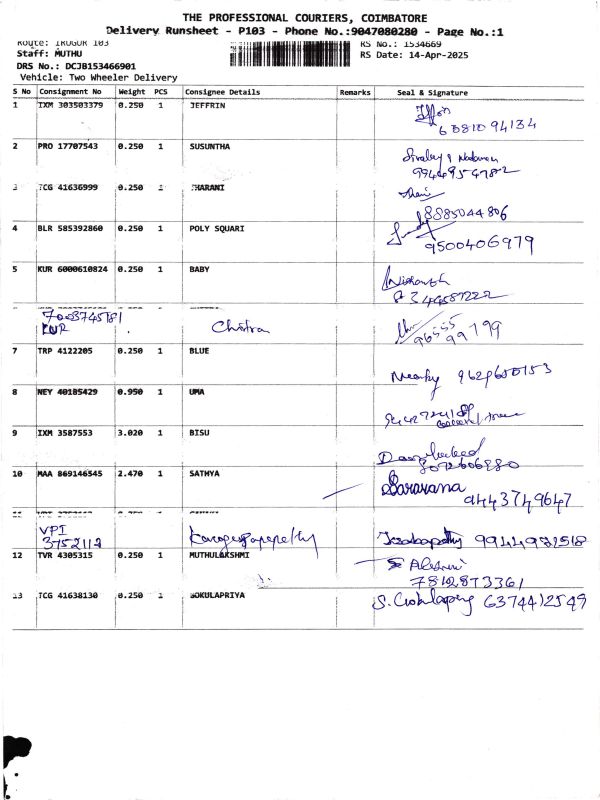 THE PROFESSIONAL COURIERS, COIMBATORE
Delivery Runsheet - P103 - Phone No.:9047080280 - Page No.:1
Route: IRUGUR 103
RS No.: 1534669
Staff: MUTHU
RS Date: 14-Apr-2025
DRS No.: DCJB153466901
Vehicle: Two Wheeler Delivery
S No Consignment No Weight PCS Consignee Details Remarks Seal & Signature
1 IXM 303503379 0.250 1 JEFFRIN
2 PRO 17707543 0.250 1 SUSUNTHA
3 TCG 41636999 0.250 1 THARANI
8885044806
4 BLR 585392860 0.250 1 POLY SQUARI
9500406979
5 KUR 6000610824 0.250 1 BABY
7003745781
KUR Chitra
96555
99799
7 TRP 4122205 0.250 1 BLUE
9629600153
8 NEY 40185429 0.950 1 UMA
9 IXM 3587553 3.020 1 BISU
8072606980
10 MAA 869146545 2.470 1 SATHYA
Saravana
9443749647
VPI
3752112
9944931518
12 TVR 4305315 0.250 1 MUTHULAKSHMI
7812873361
13 TCG 41638130 0.250 1 GOKULAPRIYA
6374412549